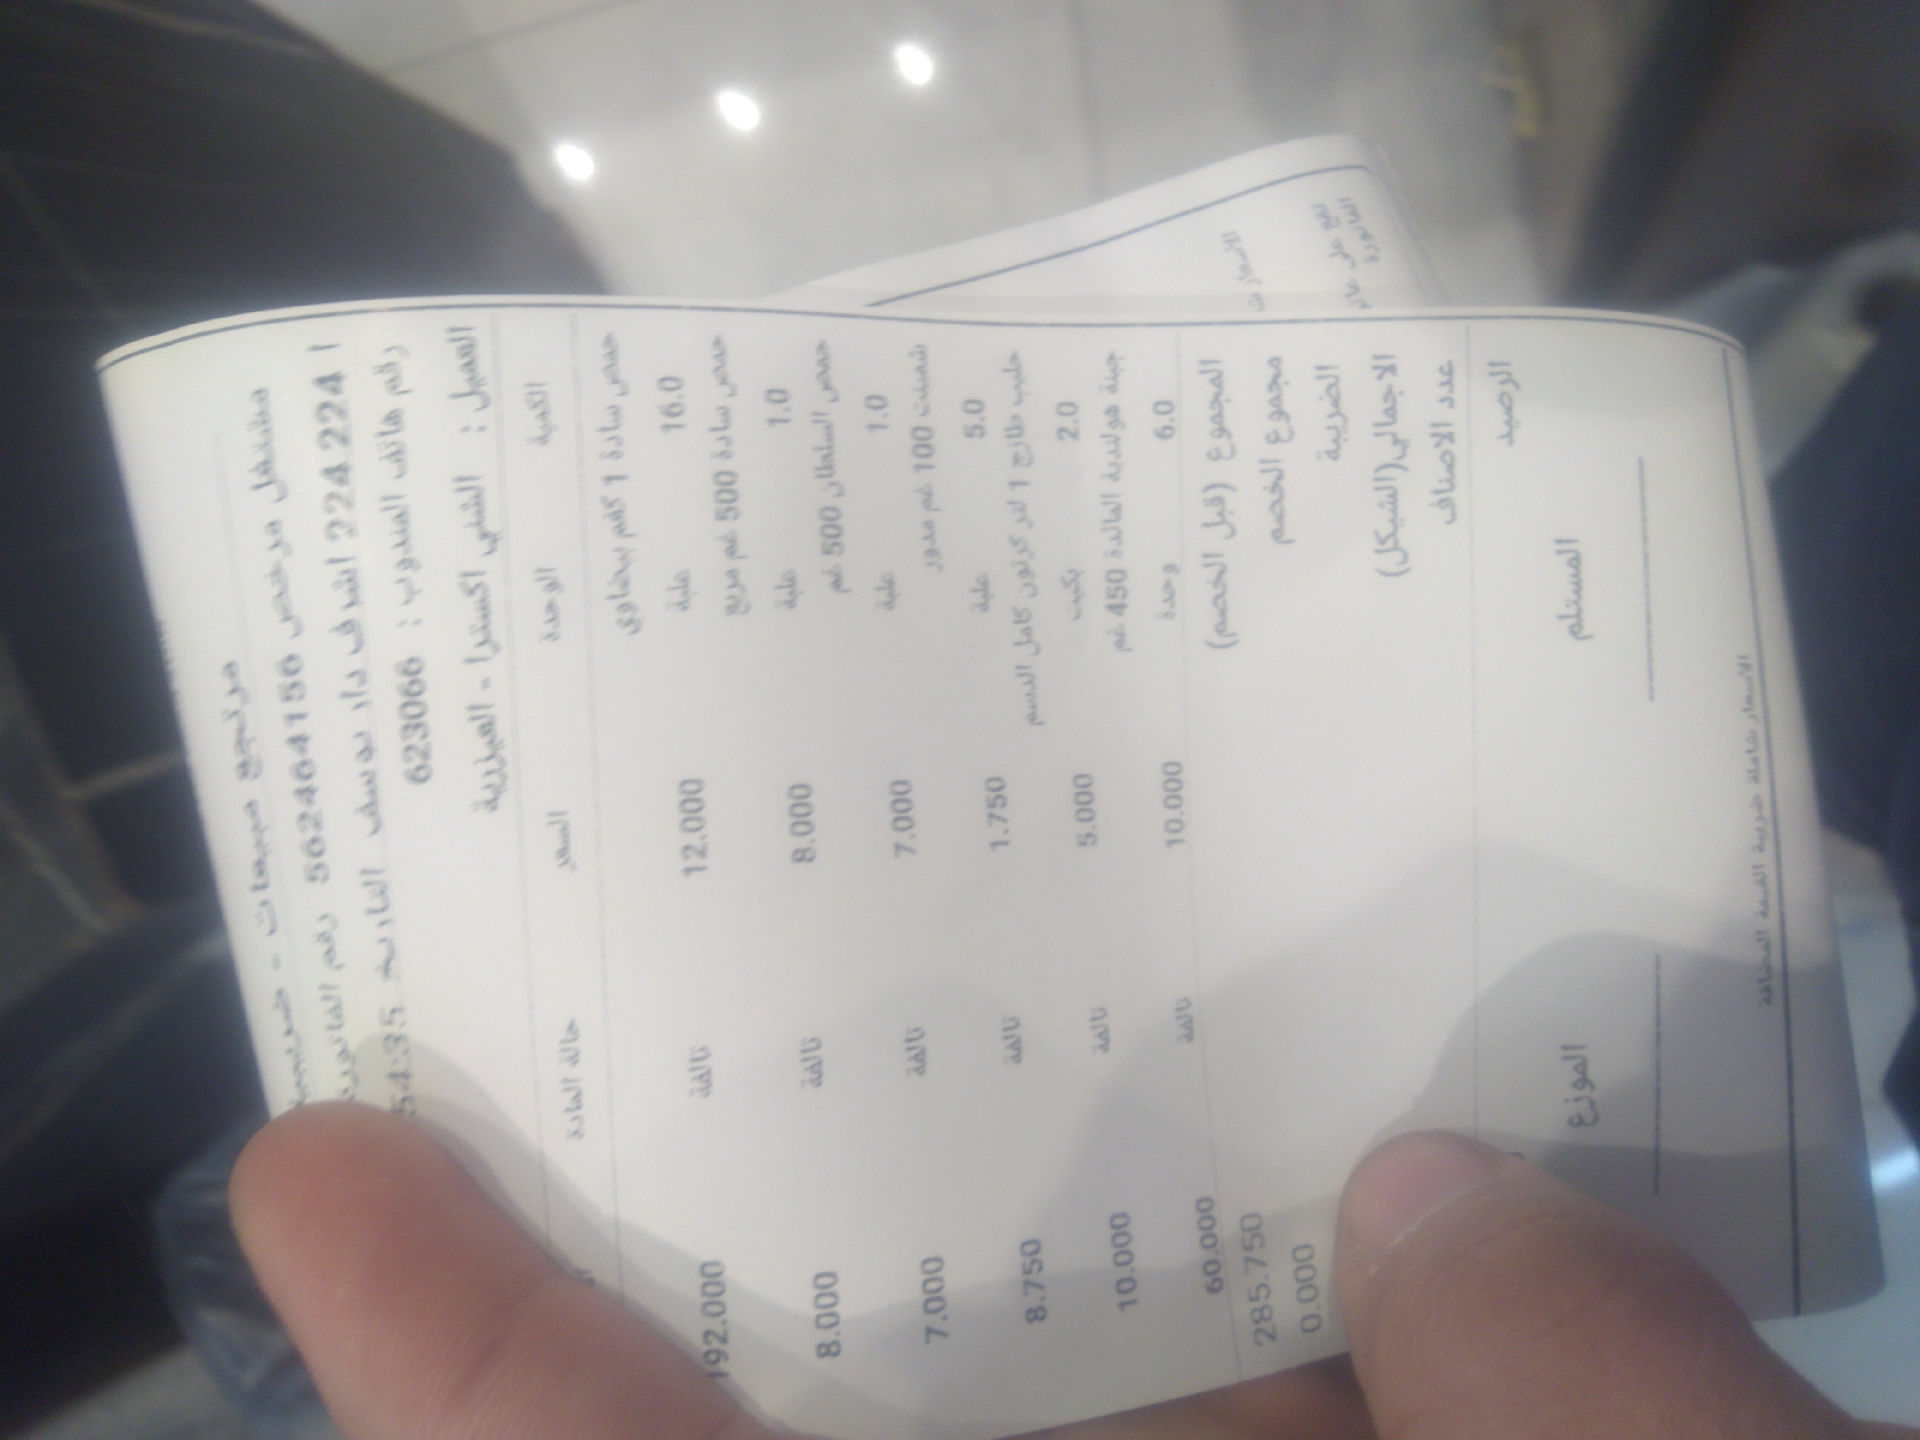 مرتجع مبيعات - ضريبية
مشتغل مرخص 562464156 رقم الفاتورة
224 224 اشرف دار يوسف التاريخ 54:35
رقم هاتف المندوب : 623066
العميل : الشني اكسترا - العيزرية
الكمية الوحدة السعر حالة المادة
حمص سادة 1 كغم بيضاوي
16.0 علبة 12.000 تالفة 192.000
حمص سادة 500 غم مربع
1.0 علبة 8.000 تالفة 8.000
حمص السلطان 500 غم
1.0 علبة 7.000 تالفة 7.000
شمينت 100 غم مدور
5.0 علبة 1.750 تالفة 8.750
حليب طازج 1 لتر كرتون كامل الدسم
2.0 بكيت 5.000 تالفة 10.000
جبنة هولندية المائدة 450 غم
6.0 وحدة 10.000 تالفة 60.000
المجموع (قبل الخصم) 285.750
مجموع الخصم 0.000
الضريبة
الاجمالي(الشيكل)
عدد الاصناف
الرصيد
المستلم الموزع
الاسعار شاملة ضريبة القيمة المضافة